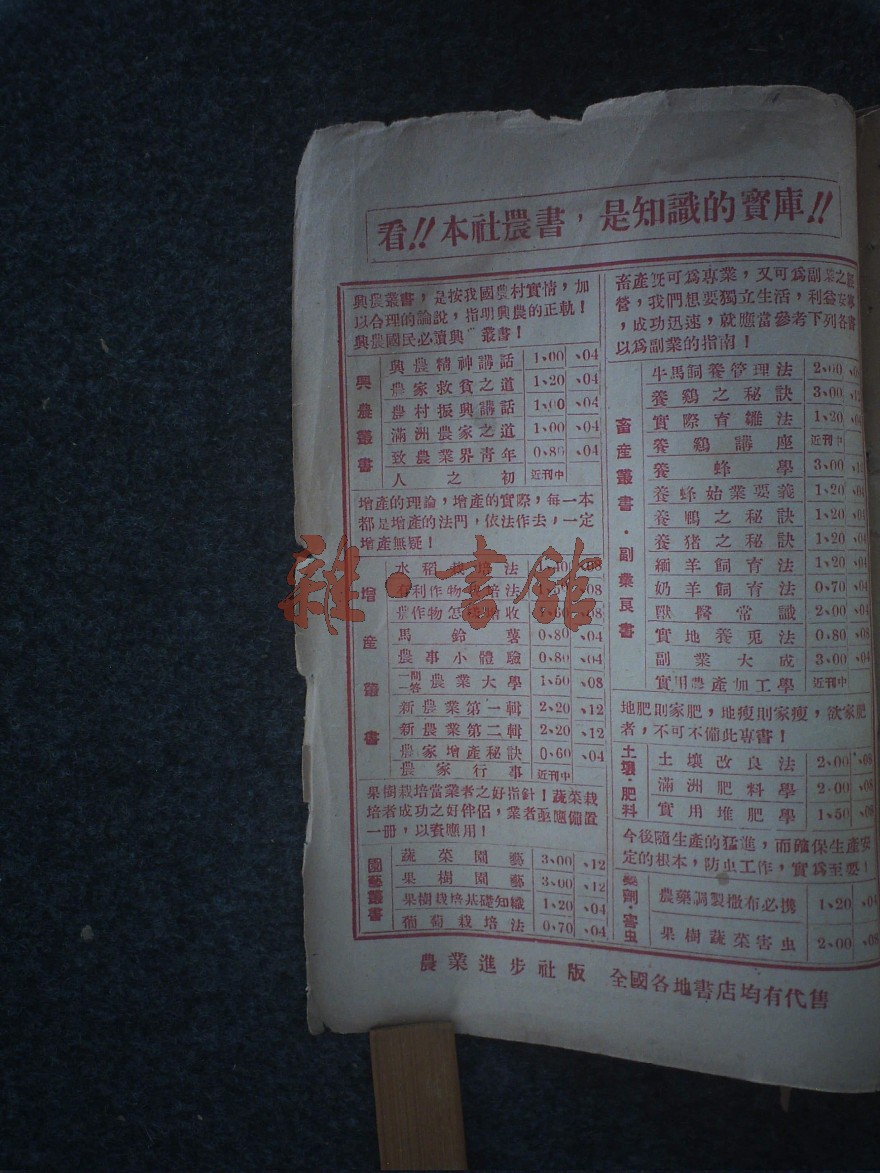 看!!本社農書，是知識的寶庫!!
興農叢書，是按我國農村實情，加
以合理的論說，指明興農的正軌！
興農國民必讀興 叢書！
興農叢書
興農精神講話 1、00 、04
農家救貧之道 1、20 、04
農村振興講話 1、00 、04
滿洲農家之道 1、00 、04
致農業界青年 0、80 、04
人之初 近刊中
增產的理論，增產的實際，每一本
都是增產的法門，依法作去，一定
增產無疑！
增産叢書
水稻栽培法 、08
有利作物栽培法 、08
農作物怎樣增收 、08
馬鈴薯 0、80 、04
農事小體驗 0、80 、04
一問一答農業大學 1、50 、08
新農業第一輯 2、20 、12
新農業第二輯 2、20 、12
農家增產秘訣 0、60 、04
農家行事 近刊中
果樹栽培當業者之好指針！蔬菜栽
培者成功之好伴侶，業者亟應備置
一冊，以資應用！
園藝叢書
蔬菜園藝 3、00 、12
果樹園藝 3、00 、12
果樹栽培基礎知識 1、20 、04
葡萄栽培法 0、70 、04
畜產旣可爲專業，又可爲副業之經
營，我們想要獨立生活，利益安寧
，成功迅速，就應當參考下列各書
以爲副業的指南！
畜産叢書・副業良書
牛馬飼養管理法 2、00
養鷄之秘訣 3、00
實際育雛法 1、20
養鷄講座 近刊中
養蜂學 3、00
養蜂始業要義 1、20 、04
養鴨之秘訣 1、20 、04
養猪之秘訣 1、20 、04
緬羊飼育法 1、20 、04
奶羊飼育法 0、70 、04
獸醫常識 2、00 、04
實地養兎法 0、80 、08
副業大成 3、00 、04
實用農產加工學 近刊中
地肥則家肥，地瘦則家瘦，欲家肥
者，不可不備此專書！
土壤・肥料
土壤改良法 2、00 、08
滿洲肥料學 2、00 、08
實用堆肥學 1、50 、08
今後隨生產的猛進，而確保生產安
定的根本，防虫工作，實爲至要！
藥劑・害虫
農藥調製撒布必携 1、20 、04
果樹蔬菜害虫 2、00 、08
農業進步社版 全國各地書店均有代售
雜・書館